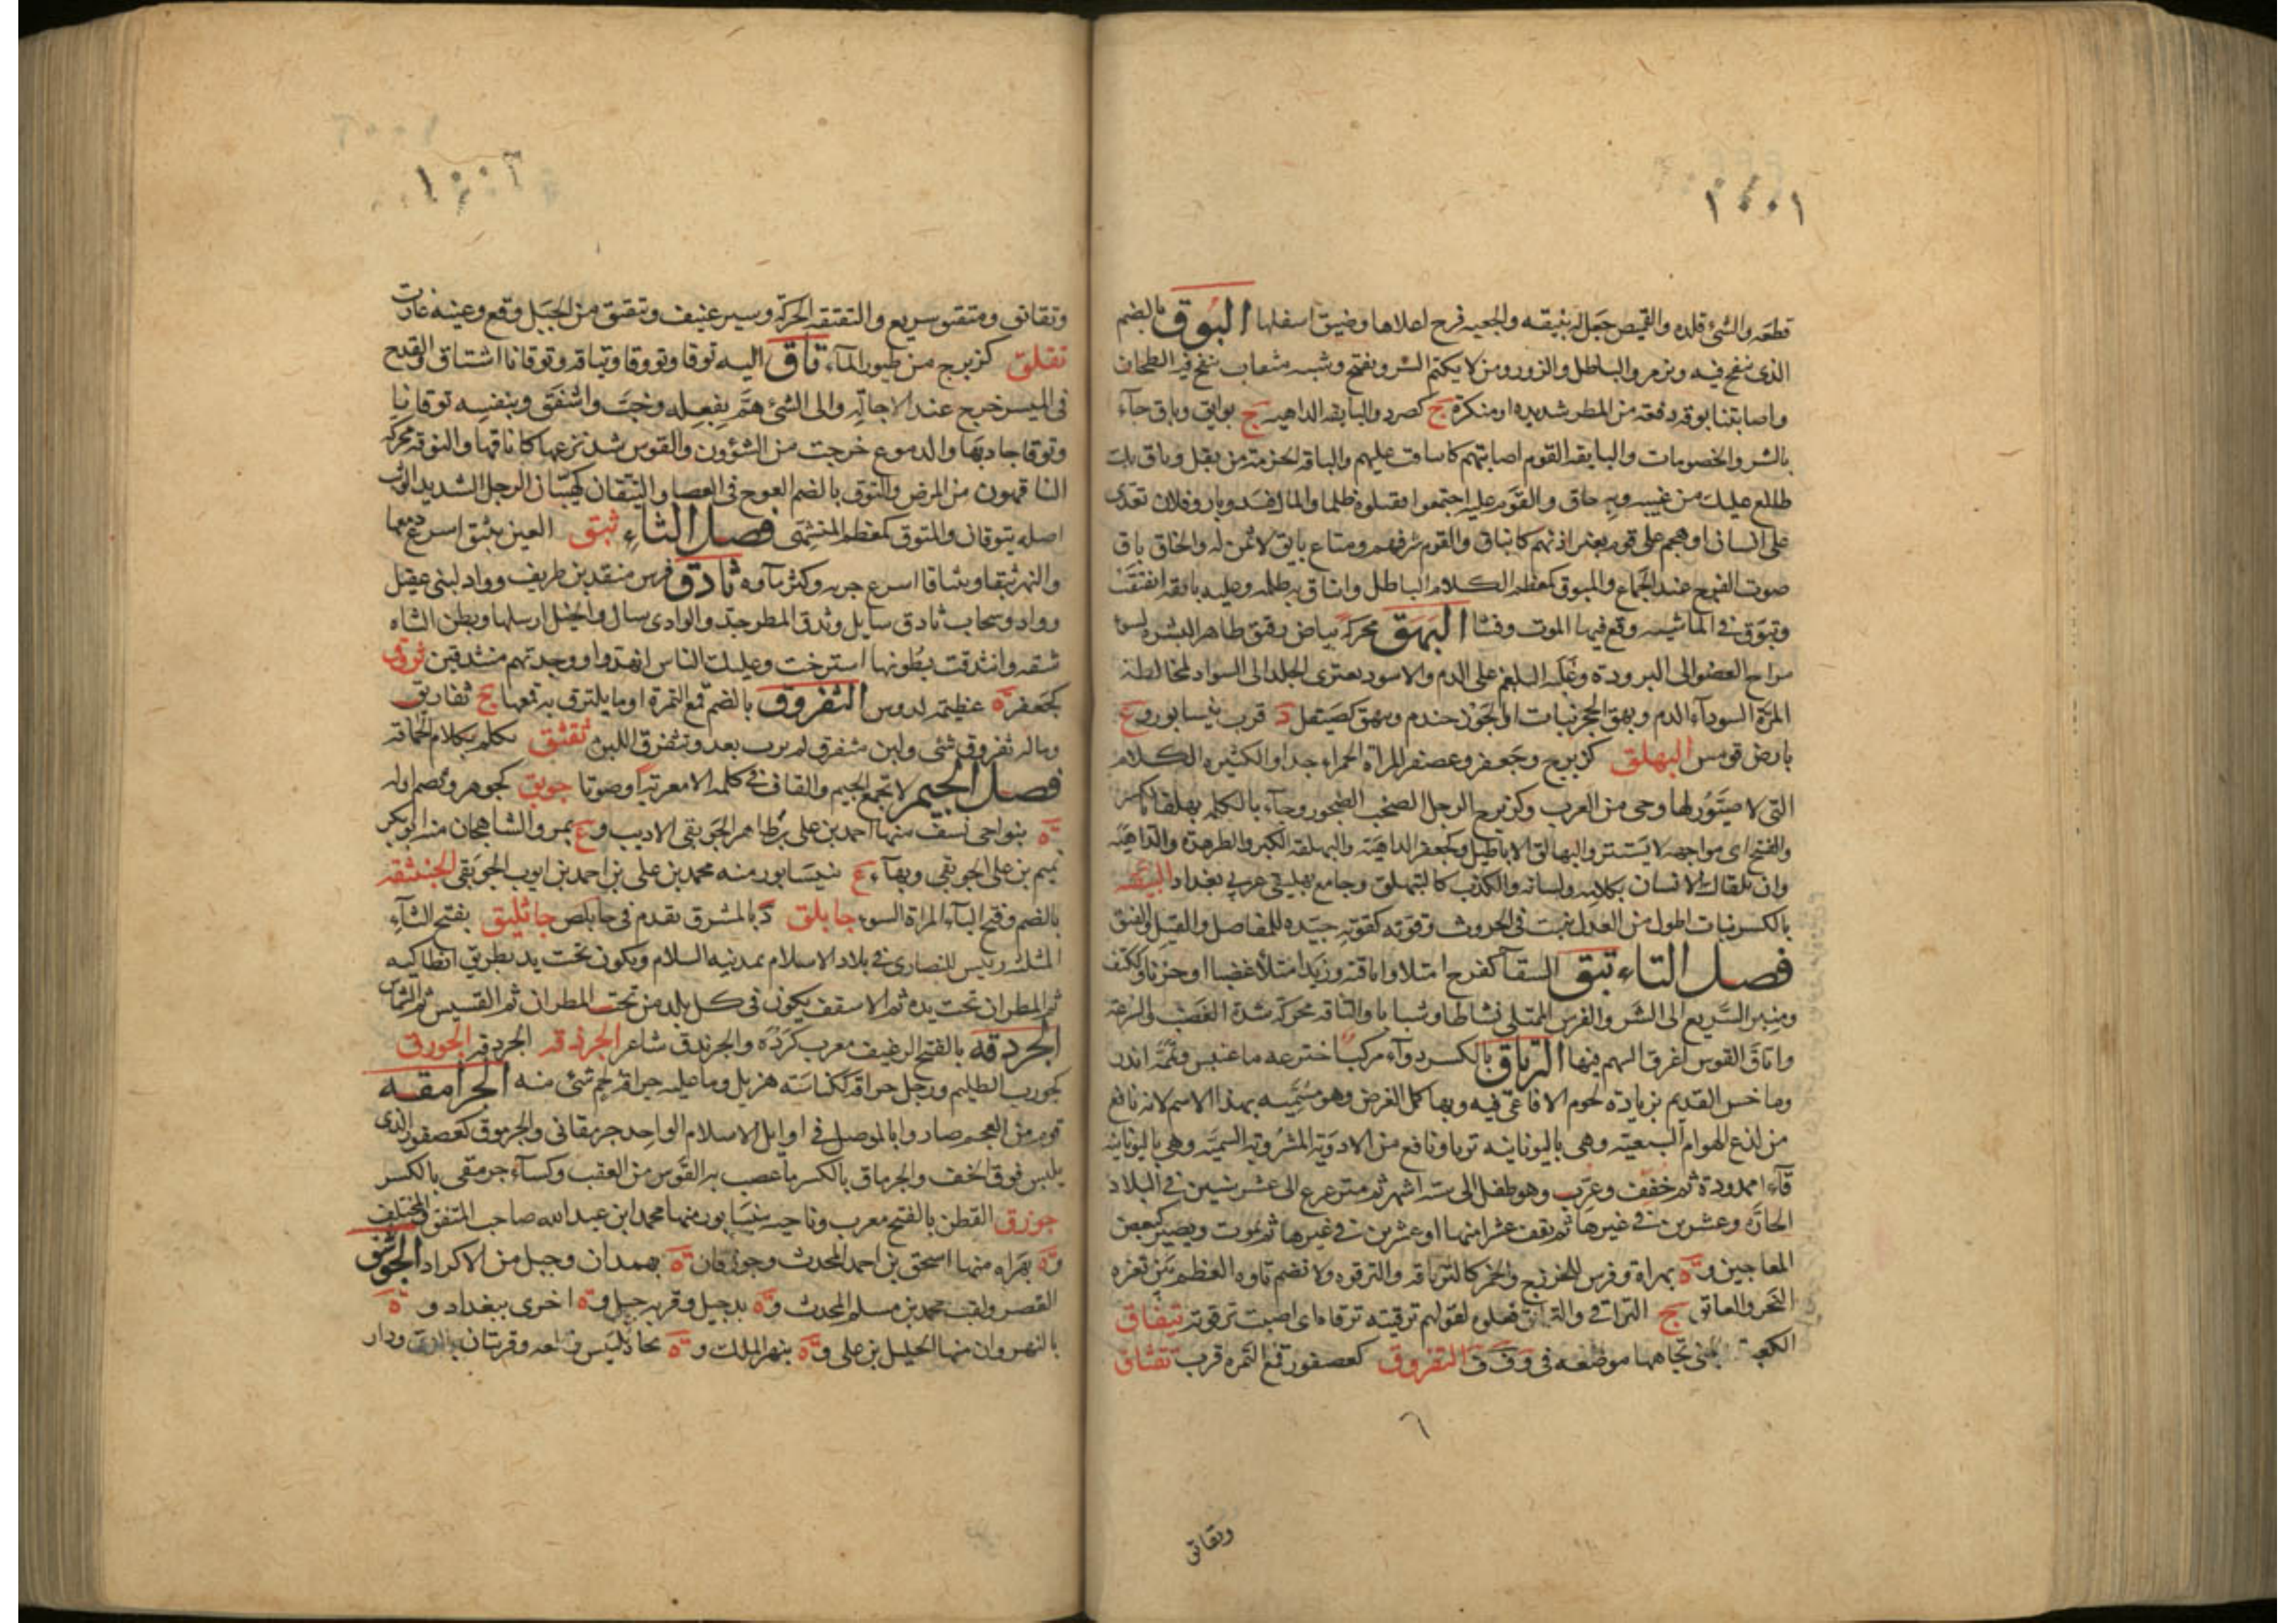 ١٠٠١
قطعه والشئ قلده والقميص جعل له بنيقه والجعبه فرج اعلاها وضيق اسفلها البوق بالضم
الذى ينفخ فيه ويزمر والباطل والزور ومن لا يكتم السر ويفتح وشبه منقاب ينفخ فيه الطحان
واصابتنا بوقه دفعه من المطر شديده او منكرة ج كصرد والبايقه الداهيه ج بوايق وباق جآء
بالشر والخصومات والبايقه القوم اصابتهم كانباقت عليهم والباقه الحزمة من بقل وباق بك
طلع عليك من غيبه وبه حاق والقوم عليه اجتمعوا فقتلوه ظلما والمال فسد وبار وفلان تعدى
على انسان او هجم على قوم بغير اذنهم كانباق والقوم سرقهم ومتاع بايق لا ثمن له والخاق باق
صوت الفرج عند الجماع والمبوق كمعظم الكلام الباطل وانباق به ظلمه وعليه بايقه انفتقت
وتبوق فى الماشيه وقع فيها الموت وفشا البهق محركة بياض رقيق ظاهر البشره لسوء
مزاج العضو الى البرودة وغلبه البلغم على الدم والاسود يعترى الجلد الى السواد لمخالطة
المرة السودآء الدم وبهق الحجر نبات او الجوز جندم وبيهق كصيقل د قرب نيسابور وع
بارض قومس البهلق كزبرج وجعفر وعصفر المراة الحمراء جدا والكثيره الكلام
التى لا صيور لها وحى من العرب وكزبرج الرجل الصخب الضجور وجآء بالكلمه بهلقا بالكسر
والفتح اى مواجهه لا يستتر والبهالق الاباطيل وكجعفر الداهية والبهلقه الكبر والطرمذة والداهية
وان تلقاك الانسان بكلامه ولسانه والكذب كالتبهلق وجامع بهليقى غربى بغداد البيقه
بالكسر نبات اطول من العدس ينبت فى الحروث وقوته كقوته جيده للمفاصل والقيل والفتق
فصل التاء تئق السقآ كفرح امتلا واتاقته وزيد امتلأ غضبا او حزنا وككتف
ومنبر السريع الى الشر والفرس الممتلى نشاطا وشبابا والتاقه محركه شدة الغضب والسرعة
واتاق القوس اغرق السهم فيها الترياق بالكسر دوآء مركب اخترعه ماغنيس وتممه اندر
وماخس القديم بزيادة لحوم الافاعى فيه وبها كمل الغرض وهو مسميه بهذا الاسم لانه نافع
من لذع الهوام السبعيه وهى باليونانيه تريا ونافع من الادوية المشروبة السمية وهى باليونانيه
قآءا ممدودة ثم خفف وعرب وهو طفل الى سته اشهر ثم مترعرع الى عشر سنين فى البلاد
الحارة وعشرين فى غيرها ثم يقف عشرا منها او عشرين فى غيرها ثم يموت ويصير كبعض
المعاجين وة بهراة وفرس للخزرج والخمر كالترياقه والترقوه ولا تضم تاوه العظم بين ثغرة
النحر والعاتق ج التراقى والترائق فعلوه لقولهم ترقيته ترقاه اى اصبت ترقوته تيفاق
الكعبة بمعنى تجاهها موضعه فى وفق التفروق كعصفور قمع التمره قرب تقتاق
وتقاتق

١٠٠٢
وتقاتق ومتقتق سريع والتقتقه الحركة وسير عنيف وتقتق من الجبل وقع وعينه غارت
تقلق كزبرج من طيور المآء تاق اليه توقا وتووقا وتياقه وتوقانا اشتاق والقدح
فى الميسر خرج عند الاجالة والى الشئ هم بفعله وخب واشفق وبنفسه توقانا
وتوقا جاد بها والدموع خرجت من الشؤون والقوس شد نزعها كاتاقها والتوقه محركه
الناقهون من المرض والتوق بالضم العوج فى العصا والتيقان كهيبان الرجل الشديد الوثب
اصله يتوقان والمتوق كمعظم المتشهى فصل الثاء ثبق العين يثبق اسرع دمعها
والنهر ثبقا وثباقا اسرع جريه وكثر مآوه ثادق فرس منقد بن طريف وواد لبنى عقيل
وواد وسحاب ثادق سايل وثدق المطر جد والوادى سال والخيل ارسلها وبطن الشاه
شقه وانثدقت بطونها استرخت وعليك الناس انهدوا ووجدتهم منثدقين ثروق
كجعفر ة عظيمة لدوس الثفروق بالضم قمع التمرة او ما يلتزق به قمعها ج ثفاريق
وماله ثفروق شئ ولبن مثفرق لم يرب بعد وثفرق اللبن ثقثق تكلم بكلام الحماقه
فصل الجيم لا تجتمع الجيم والقاف فى كلمه الا معربة او صوتا جوبق كجوهر ويضم اوله
ة بنواحى نسف منها احمد بن على بن طاهر الجوبقى الاديب وع بمرو الشاهجان منه ابو بكر
تميم بن على الجوبقى وبهآء ع نيسابور منه محمد بن على بن احمد بن ايوب الجوبقى الجنبثقه
بالضم وفتح البآء المراة السوء جابلق د بالمشرق تقدم فى جابلص جاثليق بفتح الثآء
المثلثه رييس للنصارى فى بلاد الاسلام بمدينه السلام ويكون تحت يد بطريق انطاكيه
ثم المطران تحت يده ثم الاسقف يكون فى كل بلد من تحت المطران ثم القسيس ثم الشماس
الجردقه بالفتح الرغيف معرب كرده والجرندق شاعر الجرذقه الجردقه الجورق
كجورب الظليم ورجل جراقه ككناسه هزيل وما عليه جراقه لحم شئ منه الجرامقه
قوم من العجم صاروا بالموصل فى اوايل الاسلام الواحد جرمقانى والجرموق كعصفور الذى
يلبس فوق الخف والجرماق بالكسر ما عصب به القوس من العقب وكسآء جرمقى بالكسر
جوزق القطن بالفتح معرب وناحيه بنيسابور منها محمد ابن عبد الله صاحب المتفق والمختلف
وة بهراه منها اسحق بن احمد المحدث وجوزقان ة بهمدان وجيل من الاكراد الجوسق
القصر ولقب محمد بن مسلم المحدث وة بدجيل وقربه جبل وة اخرى ببغداد وة
بالنهروان منها الخليل بن على وة بنهر الملك وة تحاذ بلبيس وقلعه وقريتان بالرى ودار